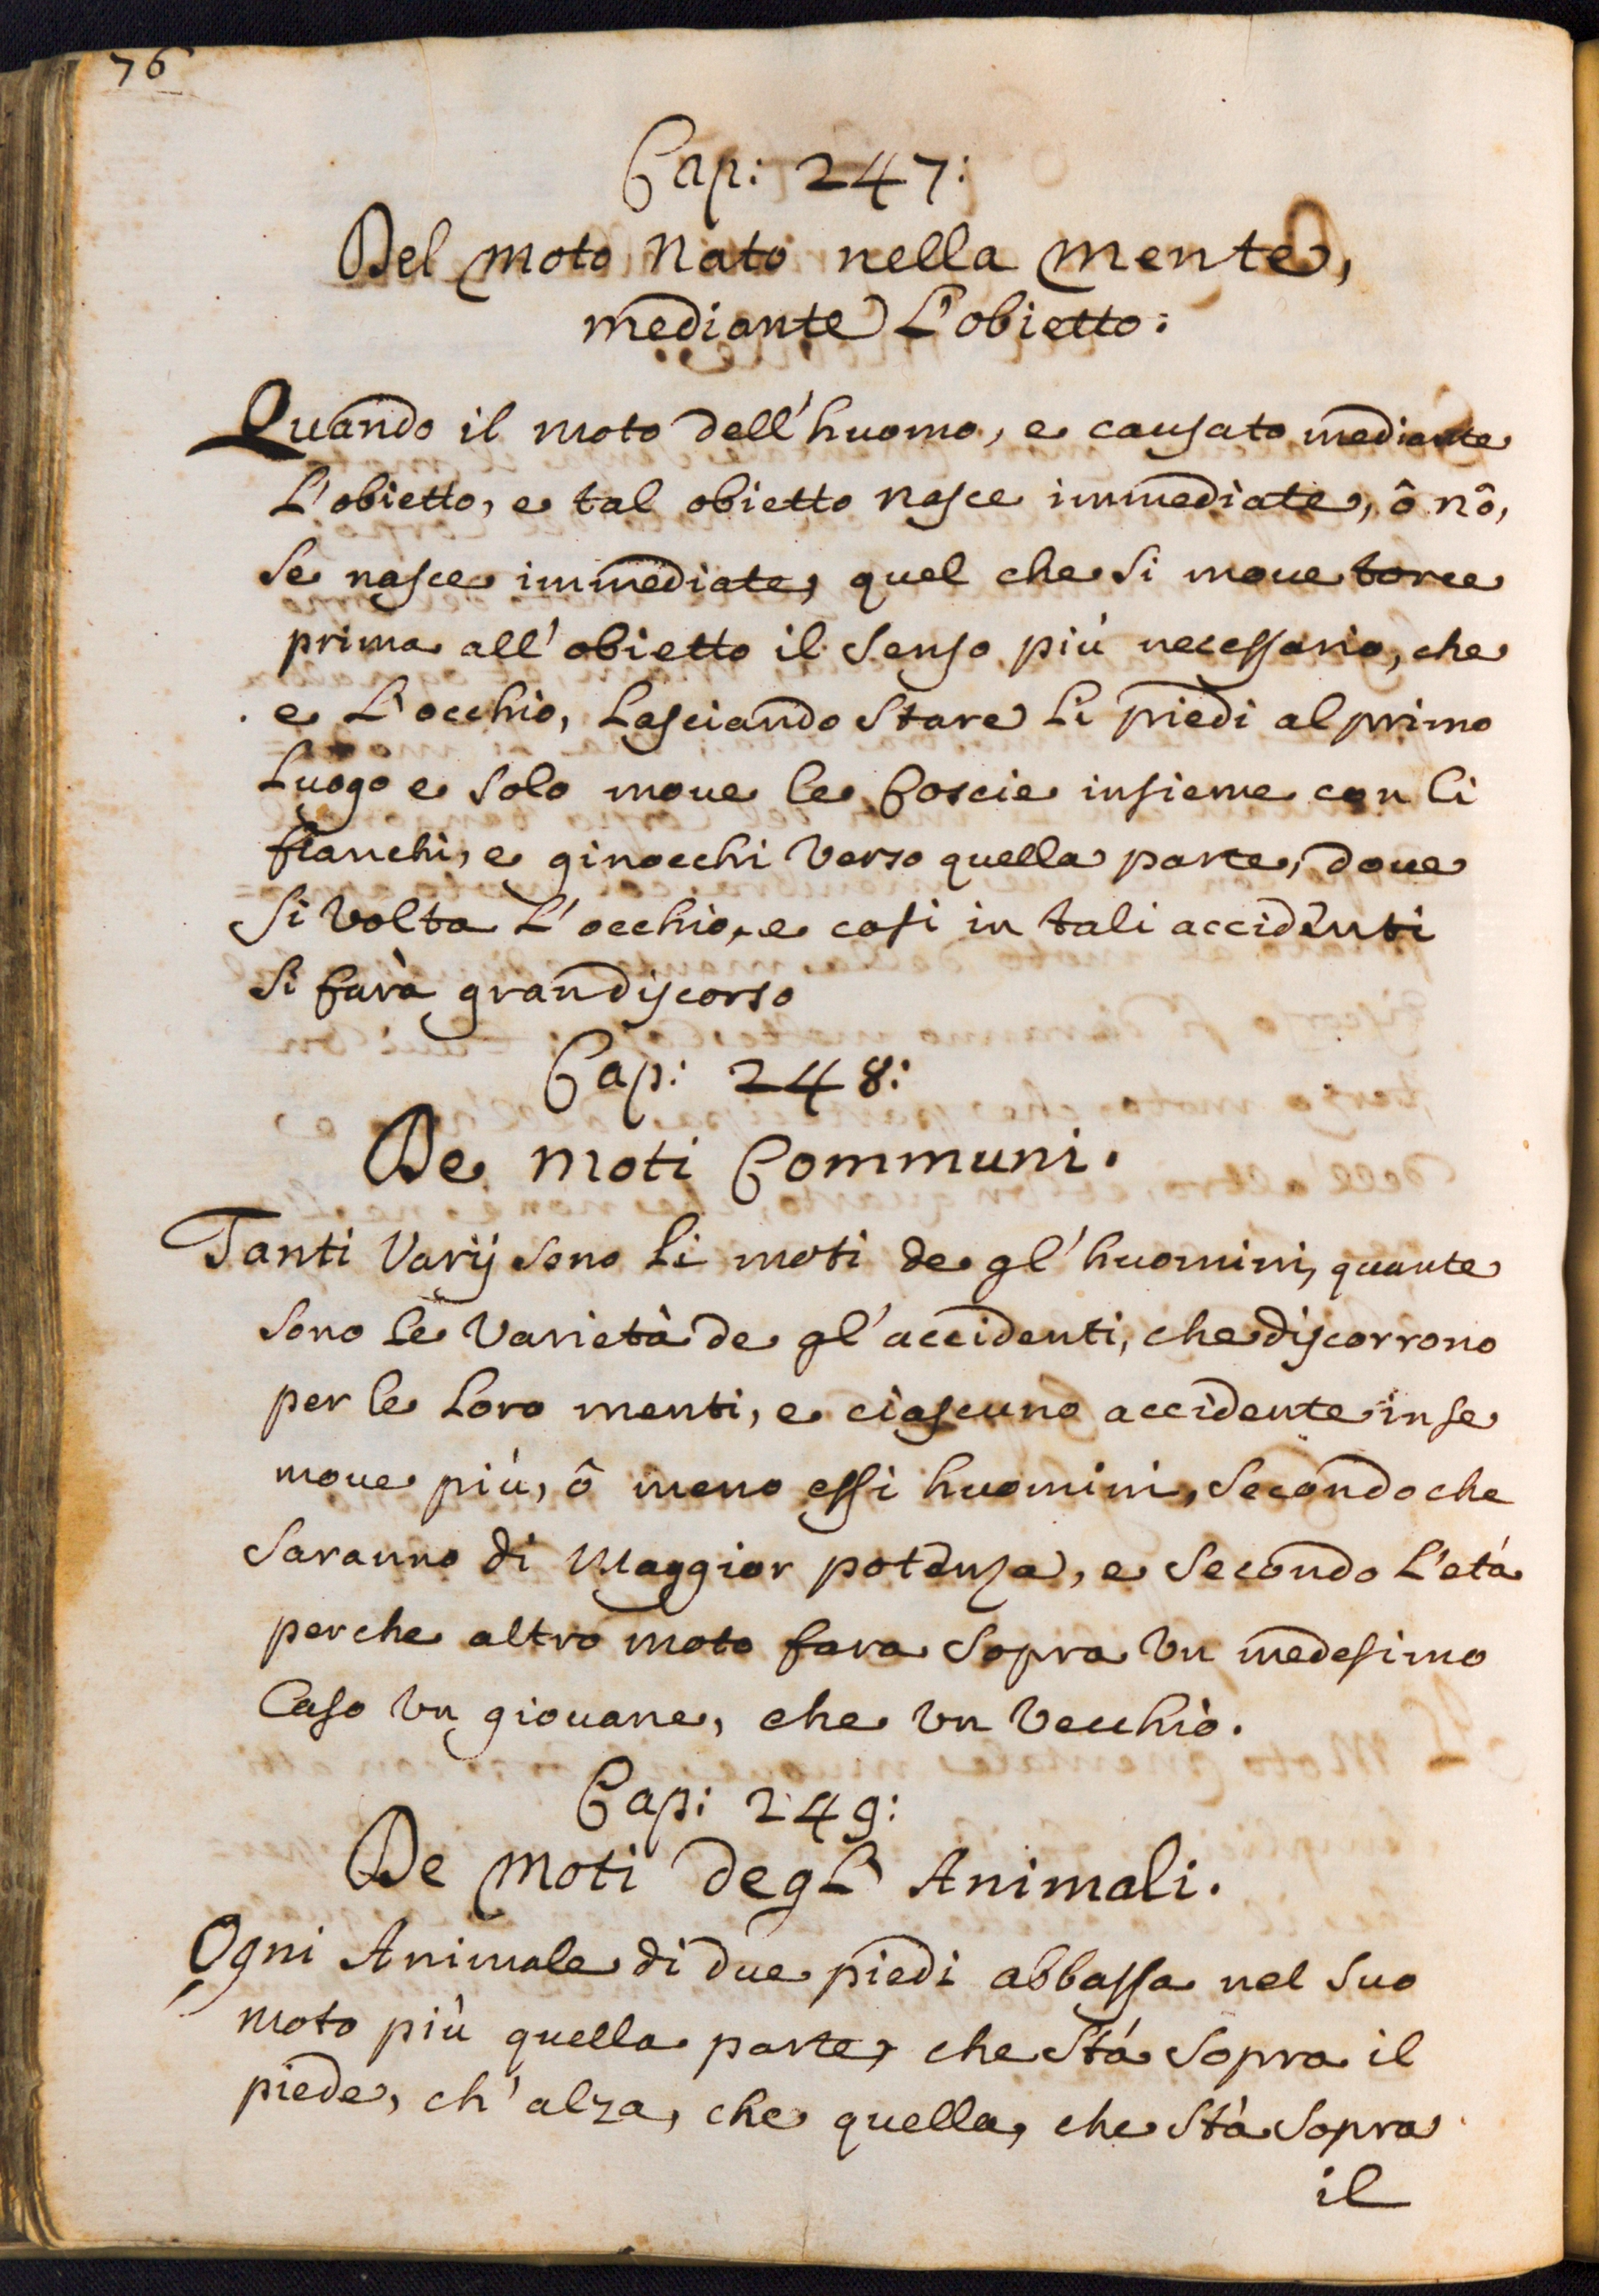 76
Cap: 247:
Del moto Nato nella mente,
mediante L'obietto:
Quando il moto dell'huomo, e causato mediante
L'obietto, e tal obietto nasce immediate, ô nô,
se nasce immediate, quel che si moue torce
prima all'obietto il senso più necessario, che
e L'occhio, Lasciando stare li piedi al primo
Luogo e solo moue le Coscie insieme con li
fianchi, e ginocchi verso quella parte, doue
si volta L'occhio, e cosi in tali accidenti
si farà gran discorso
Cap: 248:
De moti Communi.
Tanti Varij sono Li moti de gl'huomini, quante
sono le varietà de gl'accidenti, che discorrono
per le Loro menti, e ciascuno accidente in se
moue più, ô meno essi huomini, secondo che
saranno di Maggior potenza, e secondo L'età
perche altro moto fara sopra vn medesimo
Caso vn giouane, che vn Vecchio.
Cap: 249:
De Moti degl' Animali.
Ogni Animale di due piedi abbassa nel suo
moto più quella parte, che stà sopra il
piede, ch'alza, che quella, che stà sopra
il